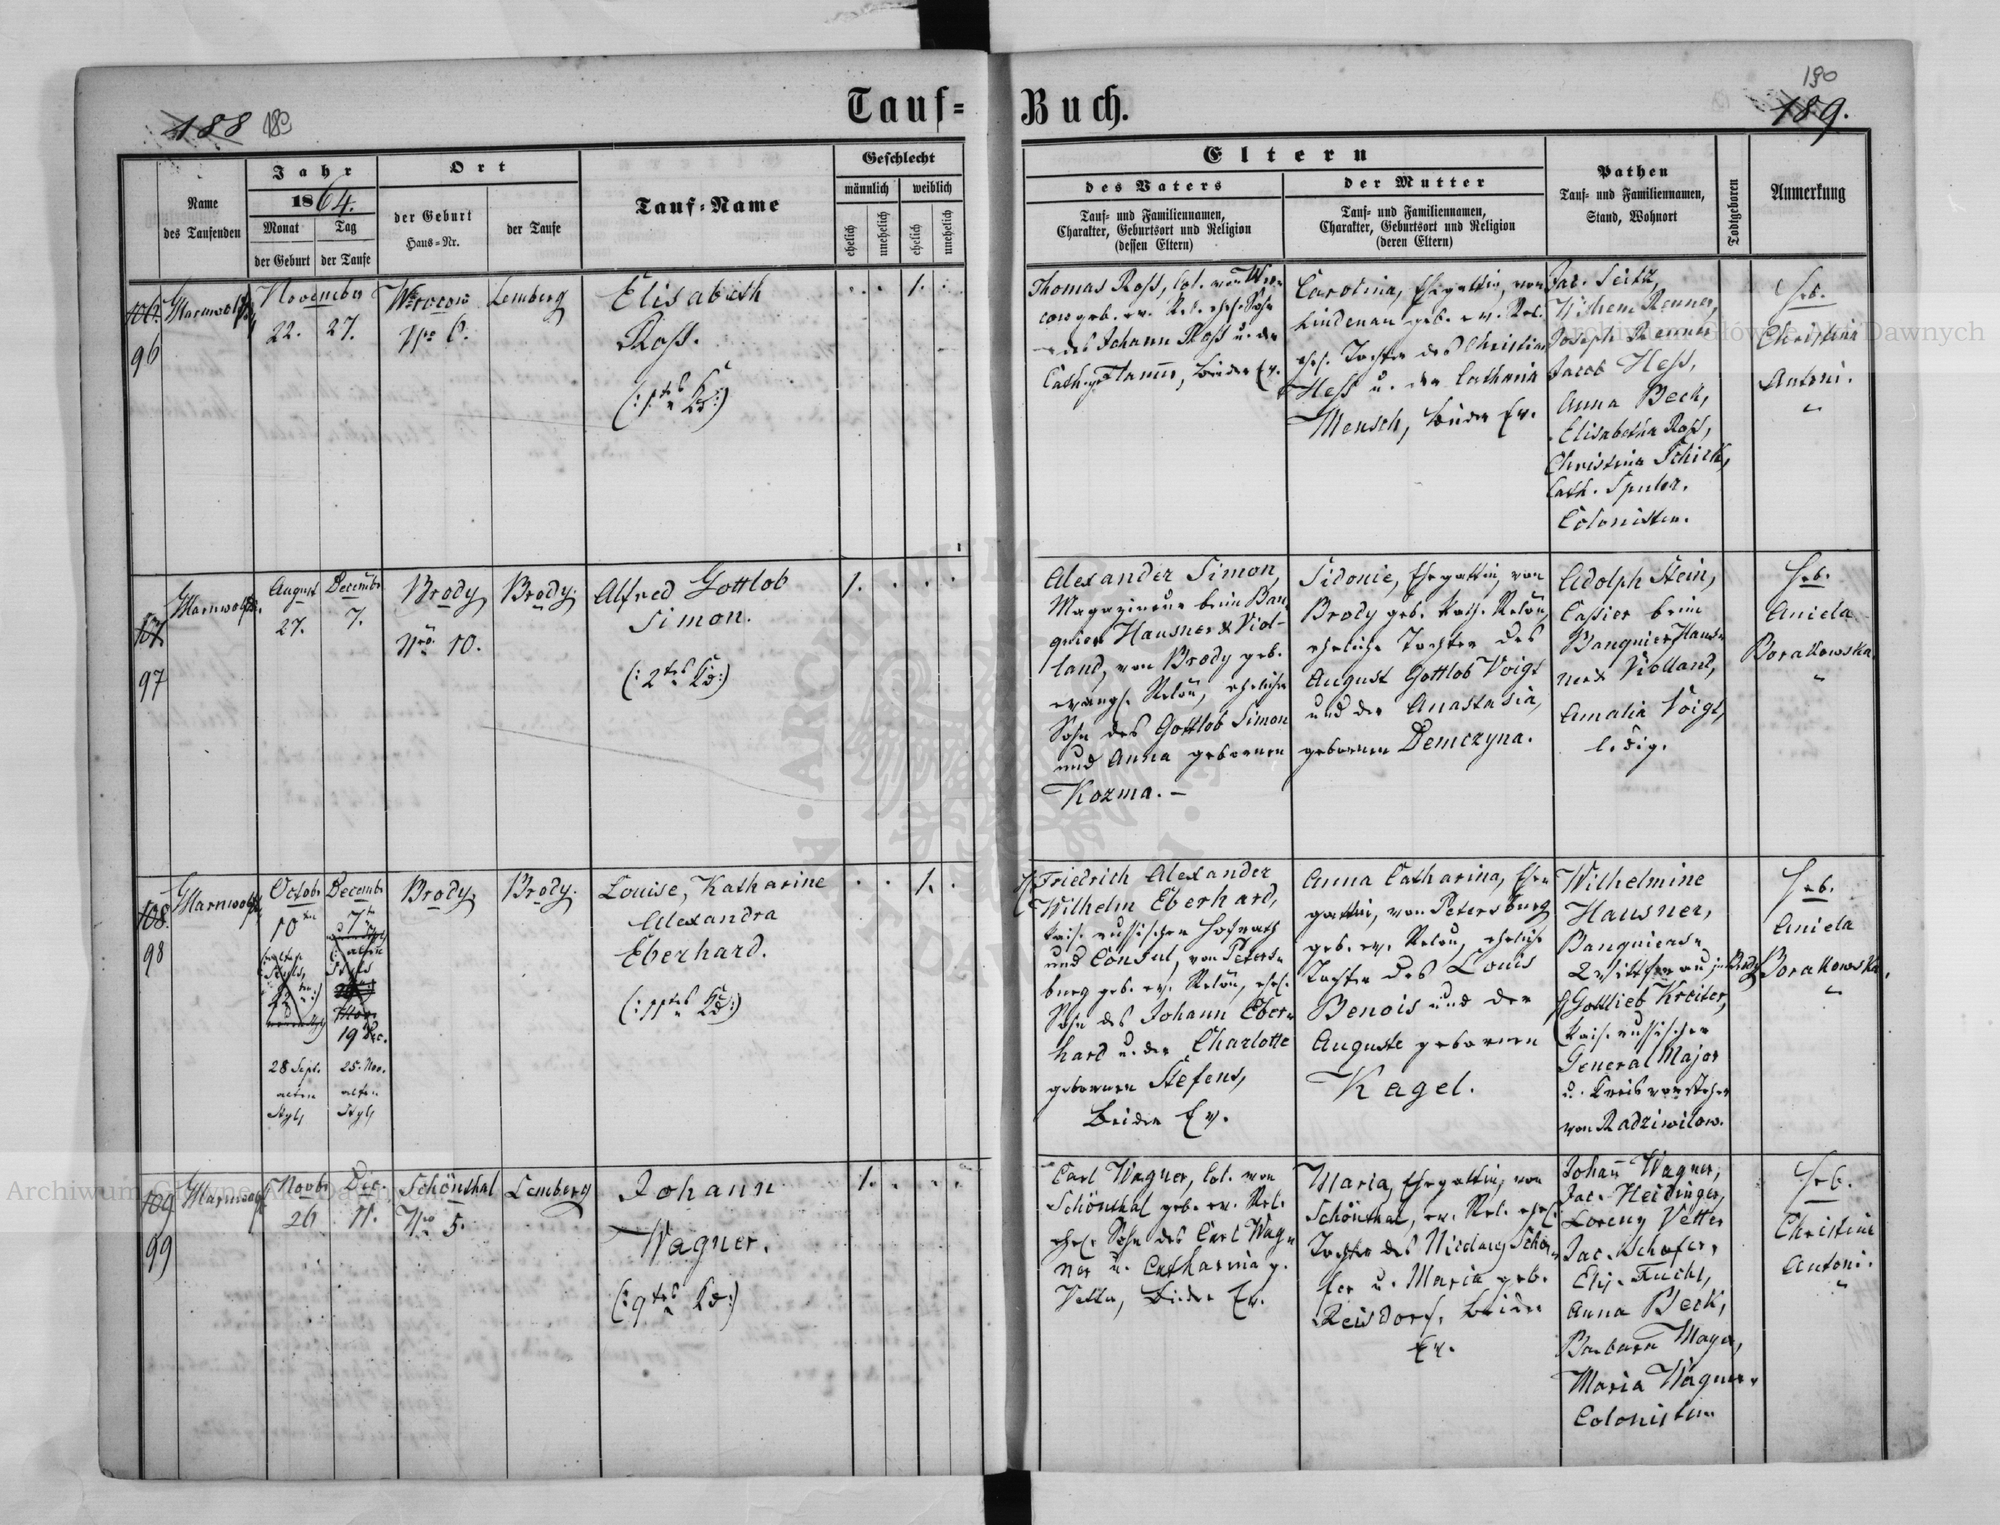 188 189
Tauf= Buch.
190
189.
Name
des Taufenden
Jahr
1864.
Monat Tag
der Geburt der Taufe
Ort
der Geburt
Haus=Nr.
der Taufe
Tauf=Name
Geschlecht
männlich weiblich
ehelich unehelich ehelich unehelich
Eltern
des Vaters
Tauf= und Familiennamen,
Charakter, Geburtsort und Religion
(dessen Eltern)
der Mutter
Tauf= und Familiennamen,
Charakter, Geburtsort und Religion
(deren Eltern)
Pathen
Tauf= und Familiennamen,
Stand, Wohnort
Todtgeboren
Anmerkung
106.
96
November
22. 27.
Nro 6.
Lemberg
Elisabeth
Ross.
1.
Thomas Ross, Col. von
cow geb. ev. Rel. ehel. Sohn
des Johann Ross u. der
Cath. beider Ev.
Carolina, Ehegattin, von
Lindenau geb. ev. Rel.
ehel. Tochter des Christian
Hess u. der Catharina
Mensch, beider Ev.
Jac. Seitz,
Wilhem Renner,
Joseph
Jacob Hess,
Anna Beck,
Elisabetha Ross,
Christina Schick,
Cath. Spuler.
Colonisten.
Heb.
Christina
Antoni.
107
97
August December
27. 7.
Brody
Nro 10.
Brody.
Alfred Gottlob
Simon.
(: 2tes Kd:)
1.
Alexander Simon,
Magazineur beim Ban
quier Hausner & Viol-
land, von Brody geb.
evangl. Relon, ehelicher
Sohn des Gottlob Simon
und Anna gebornen
Kozma. —
Sidonie, Ehegattin, von
Brody geb. kath. Relon,
eheliche Tochter des
August Gottlob Voigt
und der Anastasia,
gebornen Demczyna.
Adolph Stein,
Cassier beim
Banquier Haus=
ner & Violland,
Amalia Voigt,
ledig.
Heb.
Aniela
Borakowska.
108.
98
Octob. Decemb.
10
19 Dec.
28 Sept. 25. Nov.
alten alten
Styls Styls
Brody.
Brody.
Louise, Katharine
Alexandra
Eberhard.
(: 11tes Kd:)
1.
Friedrich Alexander
Wilhelm Eberhard,
kais. russischer Hofrath
und Consul, von Peters=
burg geb. ev. Relon, ehel.
Sohn des Johann Eber=
hard u. der Charlotte
gebornen Stefens,
Beider Ev.
Anna Catharina, Ehe=
gattin, von Petersburg
geb. ev. Relon, eheliche
Tochter des Louis
Benois und der
Auguste gebornen
Kagel.
Wilhelmine
Hausner,
Banquiers=
Wittfrau in Brody
Gottlieb Kreiter,
kais. russischer
General Major
u. Kreisvorsteher
von Radziwilow.
Heb.
Aniela
Borakowska.
109
99
Novb. Dec.
26 11.
Schönthal
Nro 5.
Lemberg
Johann
Wagner.
(: 9tes Kd:)
1.
Carl Wagner, Col. von
Schönthal geb. ev. Rel.
ehel. Sohn des Carl Wag=
ner u. Catharina g.
Vetter, Beider Ev.
Maria, Ehegattin, von
Schönthal, ev. Rel. ehel.
Tochter des Nicolaus Schä=
fer u. Maria geb.
Reisdorf, beider
Ev.
Johann Wagner,
Jac. Heidinger,
Lorenz Vetter
Jac. Schäfer,
Elis. Fuchs,
Anna Beck,
Barbara Mayer,
Maria Wagner,
Colonisten
Heb.
Christine
Antoni.
Archiwum Główne Akt Dawnych
Archiwum Główne Akt Dawnych